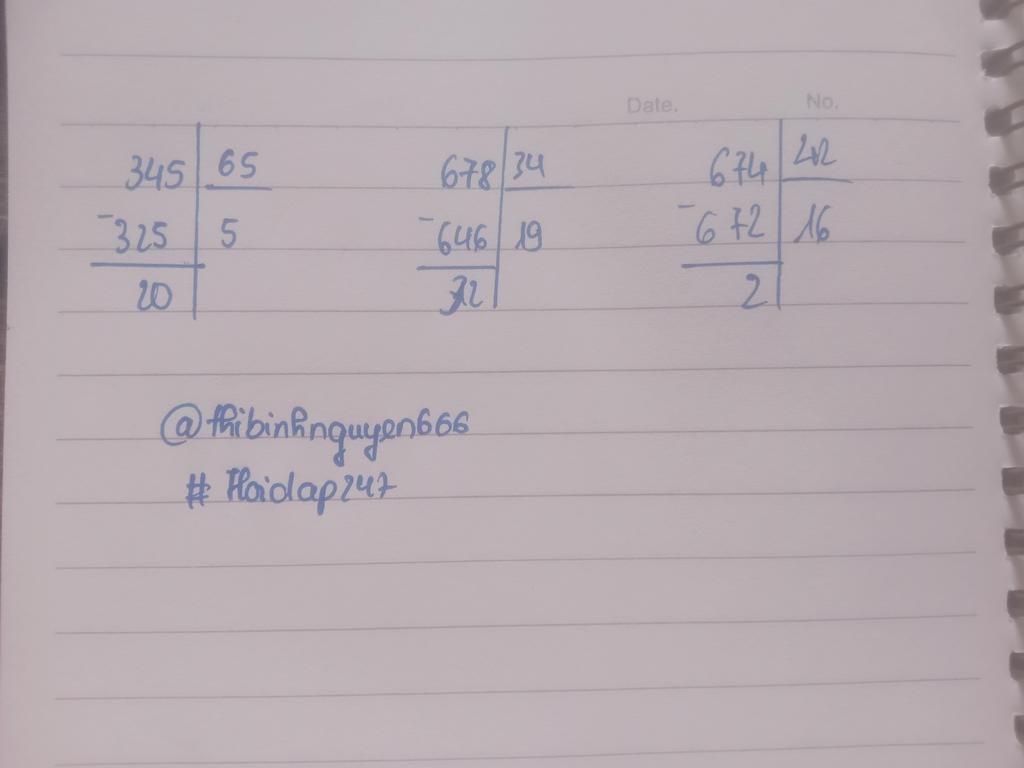 Date. No.
345 65 678 34 674 42
-325 5 -646 19 -672 16
20 32 2
@thibinhnguyen666
# Hoidap247